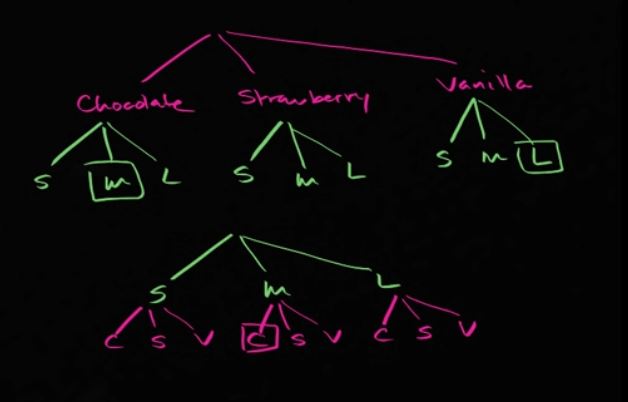 Chocolate Strawberry Vanilla
S m L S m L S m L
S m L
C S V C S V C S V